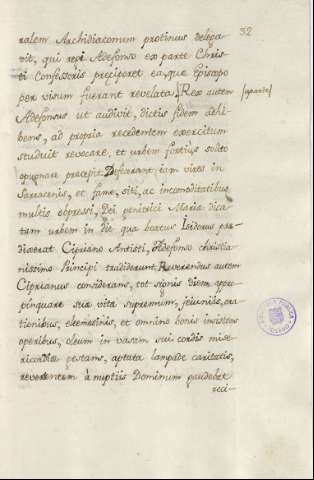 32
ralem Archidiaconem protinus delega-
vit, qui regi Adefonso ex parte Chris-
ti Confessoris preciperet ea, que Episcopo
per visum fuerant revelata. Rex autem
[aparte]
Adefonsus ut audivit, dictis fidem adhi-
bens, ad propria recedentem exercitum
studuit revocare, et urbem fortius solito
opugnare precepit. Defecerant tam vires in
Sarracenis, et fame, siti, ac incomoditatibus
multis obpressi, Dei genitrici Maria dica-
tam urbem in die qua beatus Isidorus pre-
dixerat Cipriano Antisti, Adefonso christia-
nissimo Principi tradiderunt. Reverendus autem
Ciprianus considerans, tot signis diem appro-
pinquare sua vita supremum, jejuniis, ora-
tionibus, elemosinis, et omnino bonis insistens
operibus, oleum in vasem sui cordis mise-
ricordia gestans, aptata lampade caritatis,
revertentem à nuptiis Dominum gaudebat
reci-